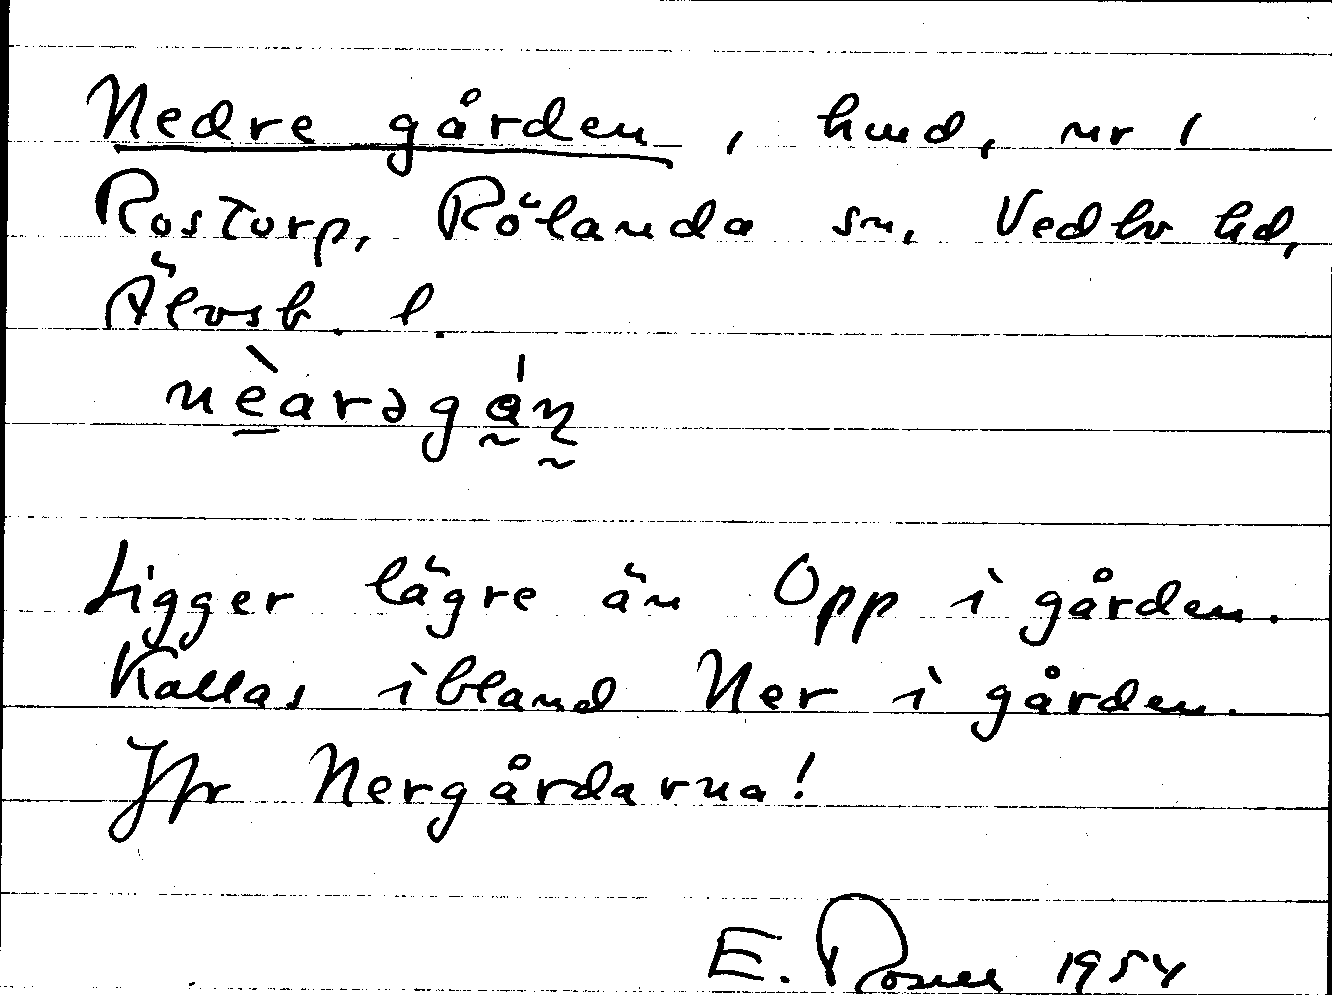 Nedre gården, hmd, nr 1
Rostorp, Rölanda sn, Vedbo hd,
Älvsb. l.
nèarəgån̥
Ligger lägre än Opp i gården.
Kallas ibland Ner i gården.
Jfr Nergårdarna!
E. Rosell 1954